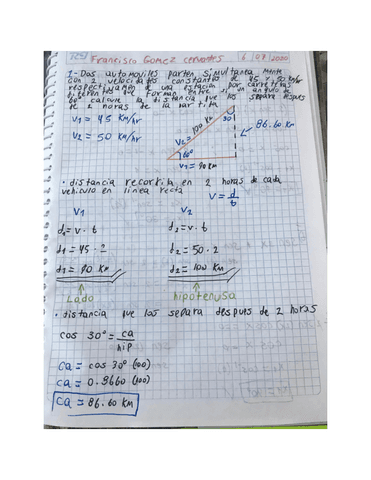 Francisco Gomez cervantes 6/07/2020
1.- Dos automoviles parten simultanea mente
con 2 velocidades constantes de 45 y 50 km/hr
respectivamente de una estación por carreteras
diferentes que forman entre si un angulo de
60° calcule la distancia que los separa despues
de 2 horas de la partida
V1 = 45 km/hr
V2 = 50 km/hr
V2 = 100 Km
30°
86.60 Km
60°
V1 = 90 km
• distancia recorrida en 2 horas de cada
vehiculo en linea recta
V = d/t
V1
V2
d1 = v · t
d2 = v · t
d1 = 45 · 2
d2 = 50 · 2
d1 = 90 Km
d2 = 100 Km
Lado
hipotenusa
• distancia que los separa despues de 2 horas
cos 30° = ca/hip
ca = cos 30° (100)
ca = 0.8660 (100)
ca = 86.60 Km